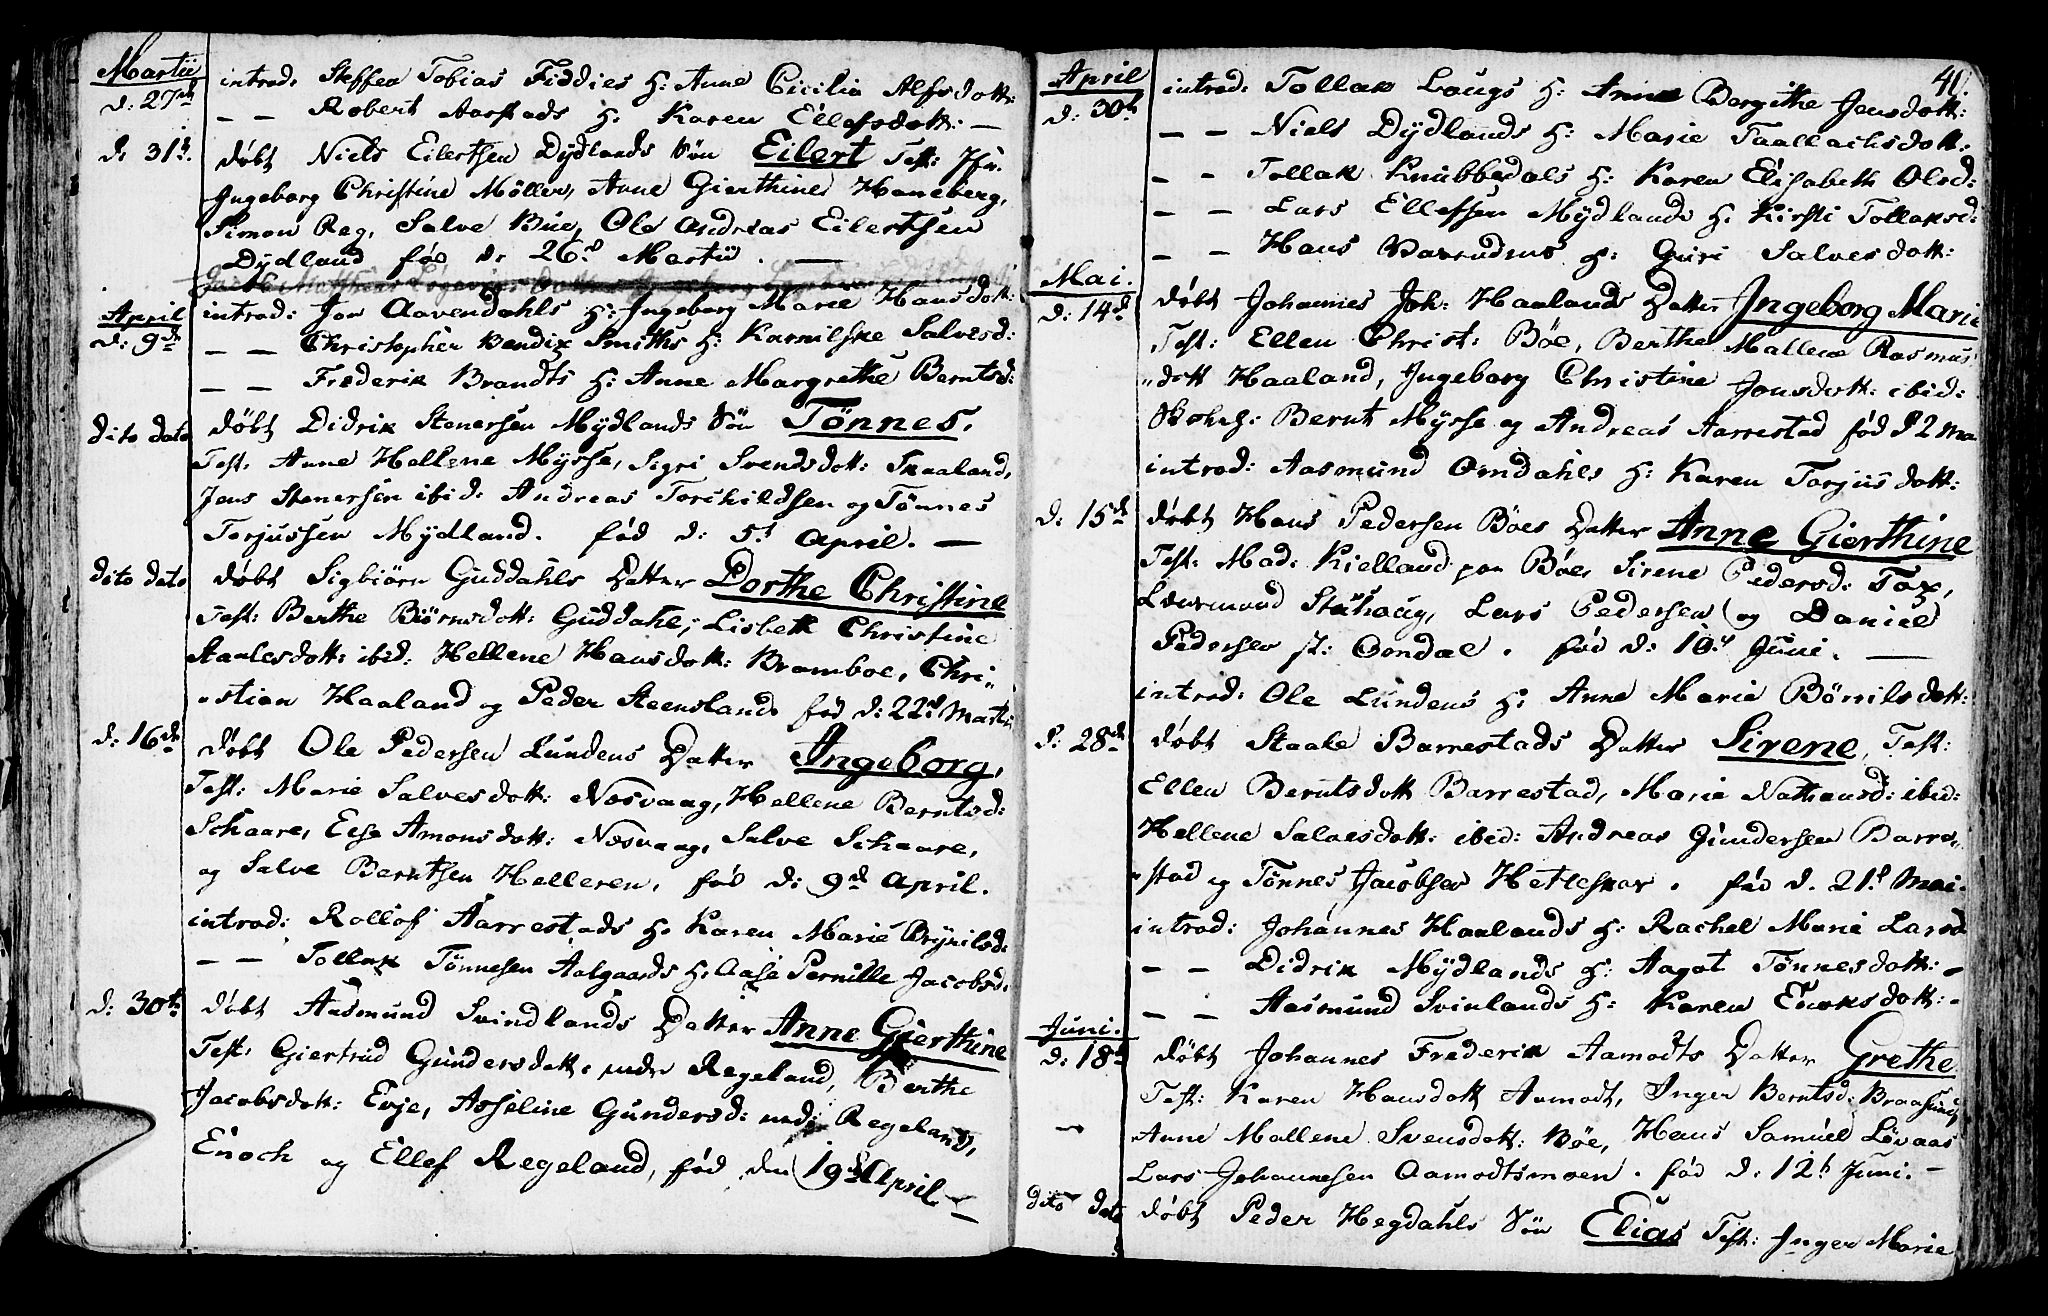 Martii
d: 27de
introd: Steffen Tobias Fiddies H: Anne Cicilia Alfsdott:
— — Robert Aarstads H: Karen Ellefsdott: —
d: 31te
døbt Niels Eilertsen Dÿdlands Søn Eilert Test: Jfr.
Ingeborg Christine Møller, Anne Gierthine Haneberg,
Simon Reg, Salve Bue, Ole Andreas Eilertsen
Dÿdland fød d: 26d Martii. —
April
d: 9de
introd: Jon Aavendahls H: Ingeborg Marie Hansdott:
— — Christopher Bendix Smiths H: Karnilske Salvesd:
— — Frederik Brandts H: Anne Margrethe Berntsd:
dito dato
døbt Didrik Stenersen Mÿdlands Søn Tønnes,
Test, Anne Hellene Mÿsse, Sigri Svendsdott: Skaaland,
Jens Stenersen ibid: Andreas Torkildsen og Tønnes
Torjussen Mÿdland. fød d: 5t April. —
dito dato
døbt Sigbiørn Guddahls Datter Dorthe Christine
Test: Berthe Biørnsdott: Guddahl, Lisbeth Christine
Staalesdott: ibid: Hellene Hansdott: Bramboe, Chri„
„stian Haaland og Peder Steensland. fød d: 22d Martii
d: 16de
døbt Ole Pedersen Lundens Datter Ingeborg,
Test: Marie Salvesdott: Nesvaag, Hellene Berntsd:
Schaare, Else Amonsdott: Nesvaag, Salve Schaare,
og Salve Berntsen Helleren, fød d: 9d April.
introd: Rollof Aarrestads H: Karen Marie Brÿnilsd:
— — Tollak Tønnesen Aalgaards H: Aase Pernille Jacobsd:
d: 30te
døbt Aasmund Svindlands Datter Anne Gierthine
Test, Giertrud Gundersdott: nedre Regeland, Berthe
Jacobsdott: Evje, Asseline Gundersd: ned: Regeland,
Enoch og Ellef Regeland, fød den 19d April —
41.
April
d: 30te
introd: Tollak Lougs H: Anne Bergithe Jensdott:
— — Niels Dÿdlands H: Marie Taallachsdott:
— — Tollak Knubbedals H: Karen Elisabeth Olsd:
— — Lars Ellefsen Mÿdlands H: Kirsti Tollaksd:
— — Hans H: Guri Salvesdott:
Mai.
d: 14de
døbt Johannes Joh: Haalands Datter Ingeborg Marie
Test: Ellen Christ: Bøe, Berthe Mallene Rasmus
„dott Haaland, Ingeborg Christine Jonsdott: ibid:
Bernt Mÿsse og Andreas Aarrestad fød d 2 Mai
introd: Aasmund Omdahls H: Karen Torjusdott:
d: 15de
døbt Hans Pedersen Bøes Datter Anne Gierthine
Test: Mad: Kielland paa Bøe, Sirene Pedersd: Tox,
Stuhaug, Lars Pedersen og Daniel
Pedersen st: Omdal. fød d: 10d Juni. —
introd: Ole Lundens H: Anne Marie Børrilsdott:
d: 28de
døbt Staale Barrestads Datter Sirene, Test:
Ellen Berntsdott Barrestad, Marie Nathansd: ibid:
Hellene Salvesdott: ibid: Andreas Gundersen Barre„
„stad og Tønnes Jacobsen Hetleskar. fød d. 21d Mai.
introd: Johannes Haalands H: Rachel Marie Larsd
— — Didrik Mÿdlands H: Aagot Tønnesdott: —
— — Aasmund Svinlands H: Karen Enoksdott: -
Juni.
d: 18de
døbt Johannes Frederik Aamodts Datter Grethe
Test: Karen Hansdott Aamodt, Inger Berntsd: Braasund,
Anne Mallene Svensdott: Bøe, Hans Samuel Løvaas
Lars Johannesen Aamodtsmoen. fød d: 12t Juni. —
dito dato
døbt Peder Hegdahls Søn Elias Test: Inger Marie